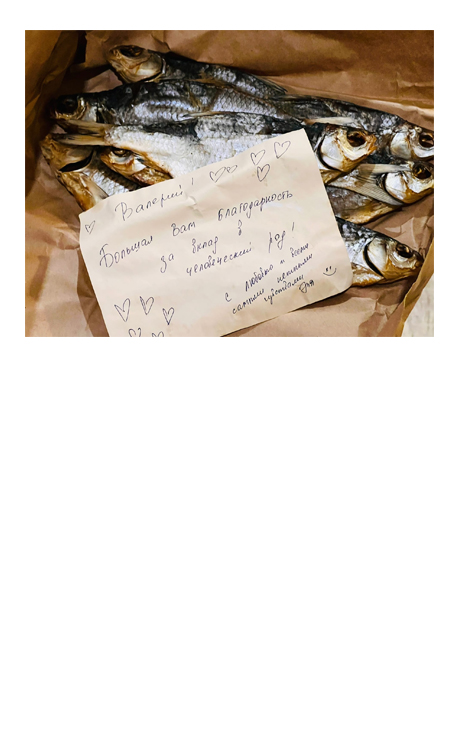 Валерий!
Большая Вам благодарность
за вклад в
человеческий род!
С любовью и всеми
самыми нежными
чувствами